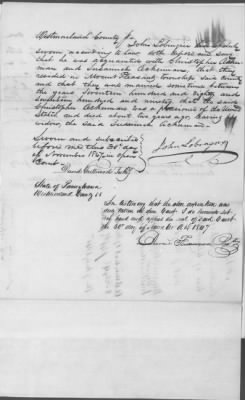 Westmoreland County ss
John Lobingier being duly
sworn according to law doth depose and say
that he was acquainted with Christopher Acker-
man and Susannah Ackerman, that they
resided in Mount Pleasant township said County
and that they was married sometime between
the years Seventeen hundred and eighty and
seventeen hundred and ninety, that the said
Christopher Ackerman was a pensioner of the United
States and died about two years ago, leaving
widow, the said Susannah Ackerman.
Sworn and subscribed
before me this 30th day
of November 1847 in open
Court
John Lobingier
David
State of Pennsylvania
Westmoreland County ss
In testimony that the above
was
day of the said Court I do hereunto set
my hand and affix the seal of said Court
the 30th day of A.D. 1847
David